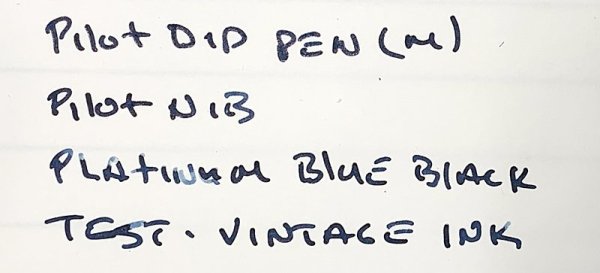 Pilot DIP PEN (M)
Pilot NIB
PLATINUM BLUE BLACK
TEST. VINTAGE INK